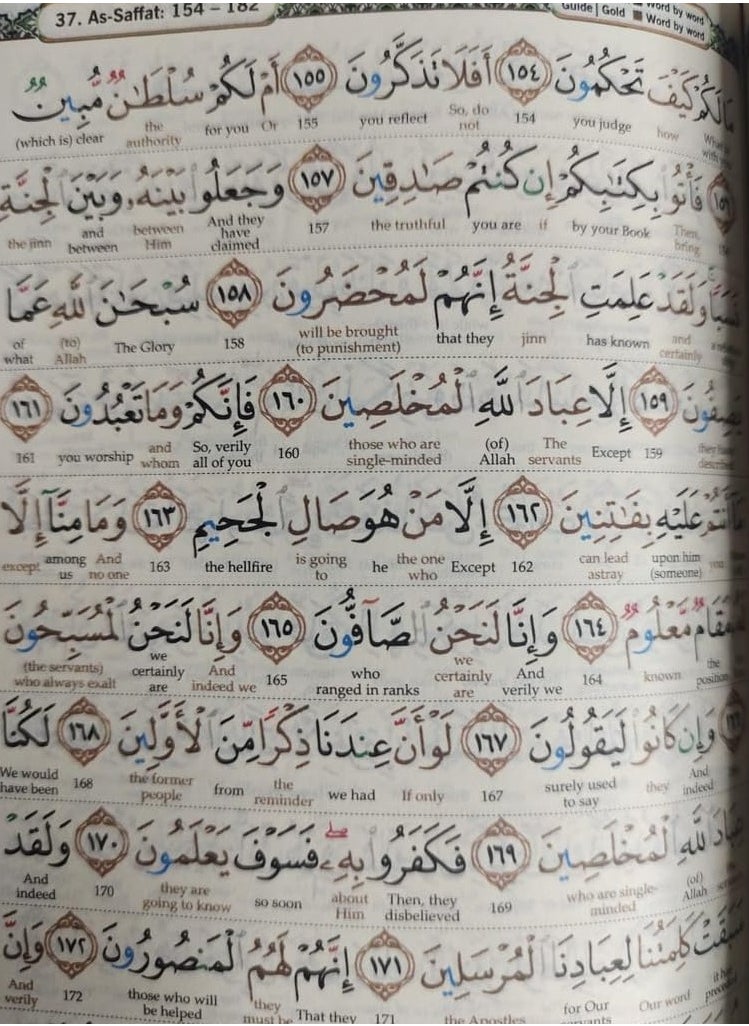 37. As-Saffat: 154 – 182
Guide | Gold ■ Word by word
■ Word by word
مَا لَكُمْ كَيْفَ تَحْكُمُونَ ١٥٤ أَفَلَا تَذَكَّرُونَ ١٥٥ أَمْ لَكُمْ سُلْطَـٰنٌ مُّبِينٌ
how you judge 154 So, do not you reflect 155 Or for you the authority (which is) clear
فَأْتُوا۟ بِكِتَـٰبِكُمْ إِن كُنتُمْ صَـٰدِقِينَ ١٥٧ وَجَعَلُوا۟ بَيْنَهُۥ وَبَيْنَ ٱلْجِنَّةِ
Then, bring by your Book if you are the truthful 157 And they have claimed between Him and between the jinn
نَسَبًا وَلَقَدْ عَلِمَتِ ٱلْجِنَّةُ إِنَّهُمْ لَمُحْضَرُونَ ١٥٨ سُبْحَـٰنَ ٱللَّهِ عَمَّا
and certainly has known jinn that they will be brought (to punishment) 158 The Glory (to) Allah of what
يَصِفُونَ ١٥٩ إِلَّا عِبَادَ ٱللَّهِ ٱلْمُخْلَصِينَ ١٦٠ فَإِنَّكُمْ وَمَا تَعْبُدُونَ ١٦١
159 Except The servants (of) Allah those who are single-minded 160 So, verily all of you and whom you worship 161
مَآ أَنتُمْ عَلَيْهِ بِفَـٰتِنِينَ ١٦٢ إِلَّا مَنْ هُوَ صَالِ ٱلْجَحِيمِ ١٦٣ وَمَا مِنَّآ إِلَّا
you upon him (someone) can lead astray 162 Except the one who he is going to the hellfire 163 And no one among us except
مَقَامٌ مَّعْلُومٌ ١٦٤ وَإِنَّا لَنَحْنُ ٱلصَّآفُّونَ ١٦٥ وَإِنَّا لَنَحْنُ ٱلْمُسَبِّحُونَ
the position known 164 And verily we we certainly are who ranged in ranks 165 And indeed we we certainly are (the servants) who always exalt
وَإِن كَانُوا۟ لَيَقُولُونَ ١٦٧ لَوْ أَنَّ عِندَنَا ذِكْرًا مِّنَ ٱلْأَوَّلِينَ ١٦٨ لَكُنَّا
And indeed they surely used to say 167 If only we had the reminder from the former people 168 We would have been
عِبَادَ ٱللَّهِ ٱلْمُخْلَصِينَ ١٦٩ فَكَفَرُوا۟ بِهِۦ ۖ فَسَوْفَ يَعْلَمُونَ ١٧٠ وَلَقَدْ
(of) Allah who are single-minded 169 Then, they disbelieved about Him so soon they are going to know 170 And indeed
سَبَقَتْ كَلِمَتُنَا لِعِبَادِنَا ٱلْمُرْسَلِينَ ١٧١ إِنَّهُمْ لَهُمُ ٱلْمَنصُورُونَ ١٧٢ وَإِنَّ
Our word for Our the Apostles 171 That they they must be those who will be helped 172 And verily